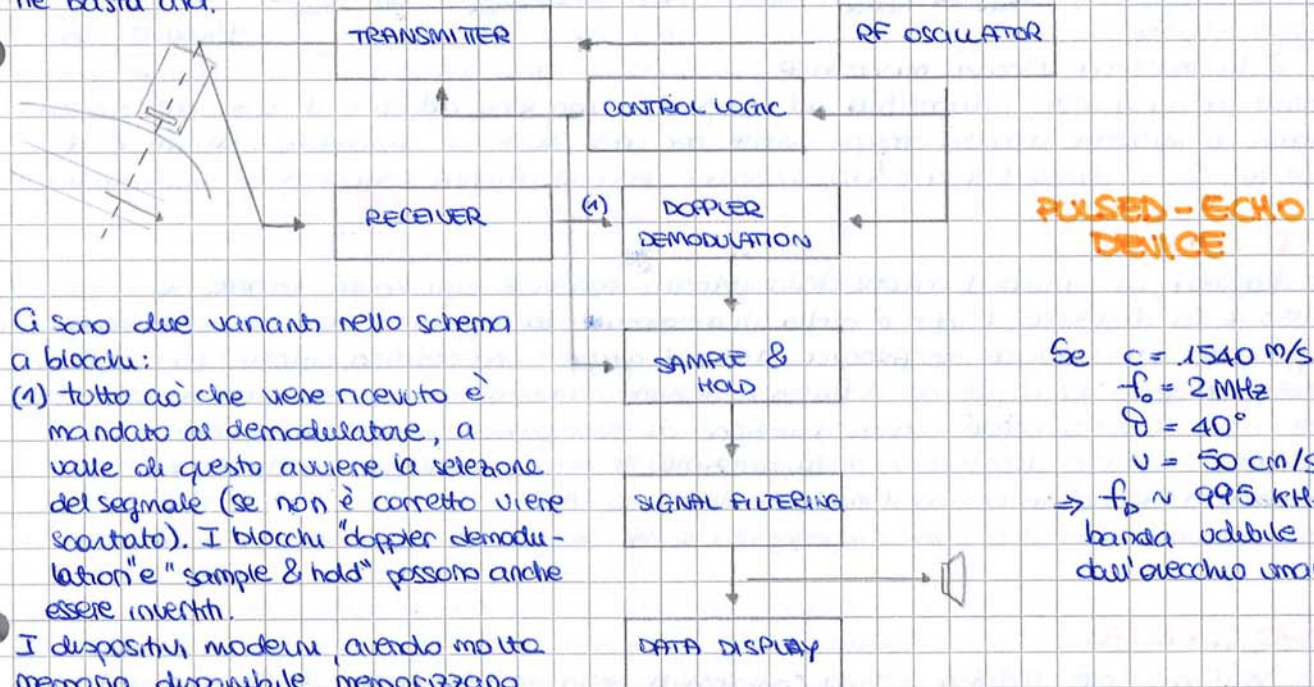 ne basta una.
TRANSMITTER
RF OSCILLATOR
CONTROL LOGIC
RECEIVER
(1)
DOPPLER
DEMODULATION
PULSED-ECHO
DEVICE
Ci sono due varianti nello schema
a blocchi:
(1) tutto ciò che viene ricevuto è
mandato al demodulatore, a
valle di questo avviene la selezione
del segnale (se non è corretto viene
scartato). I blocchi "doppler demodu-
lation" e "sample & hold" possono anche
essere invertiti.
I dispositivi moderni, avendo molta
memoria disponibile, memorizzano
SAMPLE &
HOLD
SIGNAL FILTERING
DATA DISPLAY
Se c = 1540 m/s
f₀ = 2 MHz
θ = 40°
v = 50 cm/s
⇒ f_D ~ 995 KH
banda udibile
dall'orecchio uma